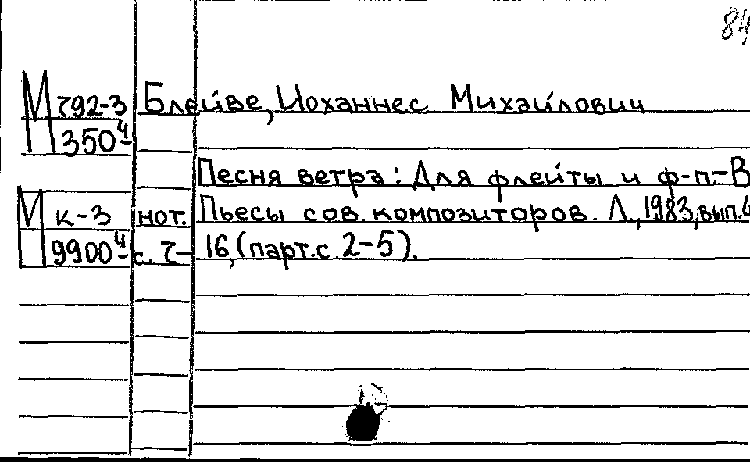 84
М 792-3 Блейве, Иоханнес Михайлович
350ч
Песня ветра: Для флейты и ф-п.-В
М к-3 нот. Пьесы сов. композиторов. Л., 1983, вып.4
9900ч с. 7- 16, (парт. с 2-5).